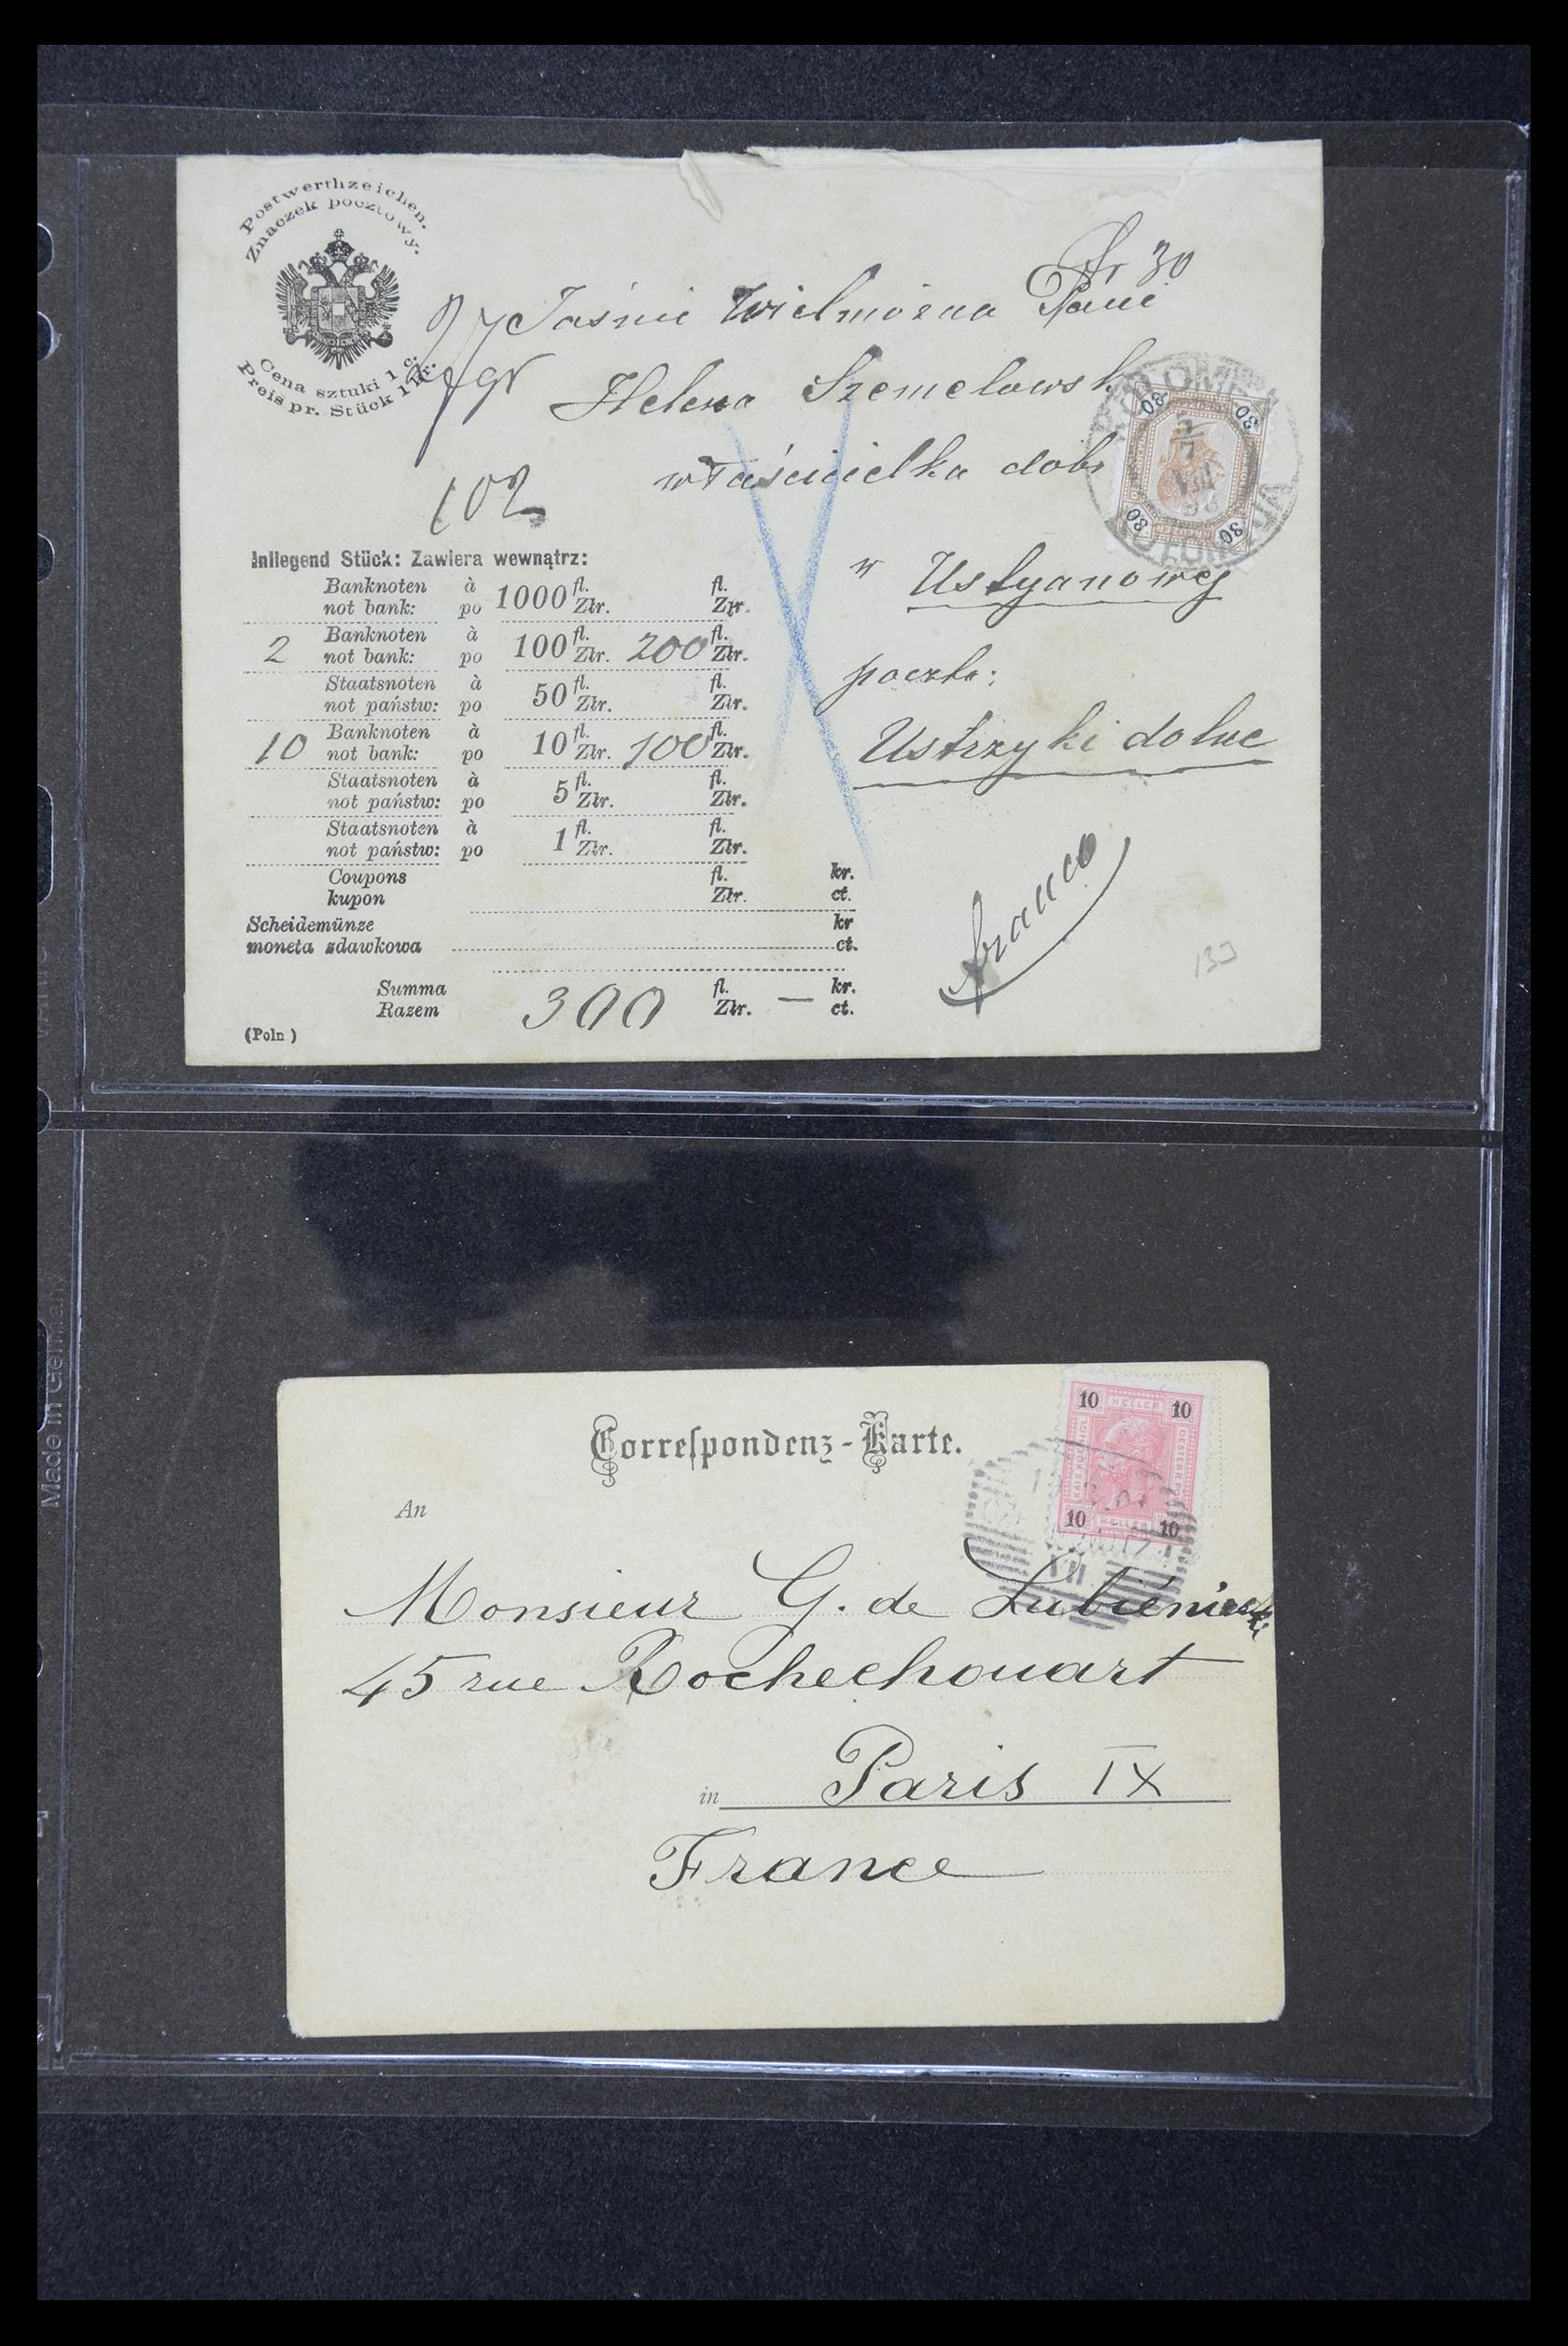 Postwerthzeichen.
Znaczek pocztowy.
Cena sztuki 1 c.
Preis pr. Stück 1 kr.
30
Jaśnie Wielmożna Pani
Helena Szemelowsk
właścicielka dobr
30 30
30 30
102
w Ustyanowej
poczta:
Ustrzyki dolne
franco
Inliegend Stück: Zawiera wewnątrz:
Banknoten à 1000 fl. fl.
not bank: po Złr. Złr.
2 Banknoten à 100 fl. 200 fl.
not bank: po Złr. Złr.
Staatsnoten à 50 fl. fl.
not państw: po Złr. Złr.
10 Banknoten à 10 fl. 100 fl.
not bank: po Złr. Złr.
Staatsnoten à 5 fl. fl.
not państw: po Złr. Złr.
Staatsnoten à 1 fl. fl.
not państw: po Złr. Złr.
Coupons fl. kr.
kupon Złr. ct.
Scheidemünze kr
moneta zdawkowa ct.
Summa 300 fl. — kr.
Razem Złr. ct.
(Poln )
Made in German
Correspondenz-Karte.
10 HELLER 10
10 HELLER 10
VII
An
Monsieur G. de Lubiéniecki
45 rue Rochechouart
in Paris IX
France